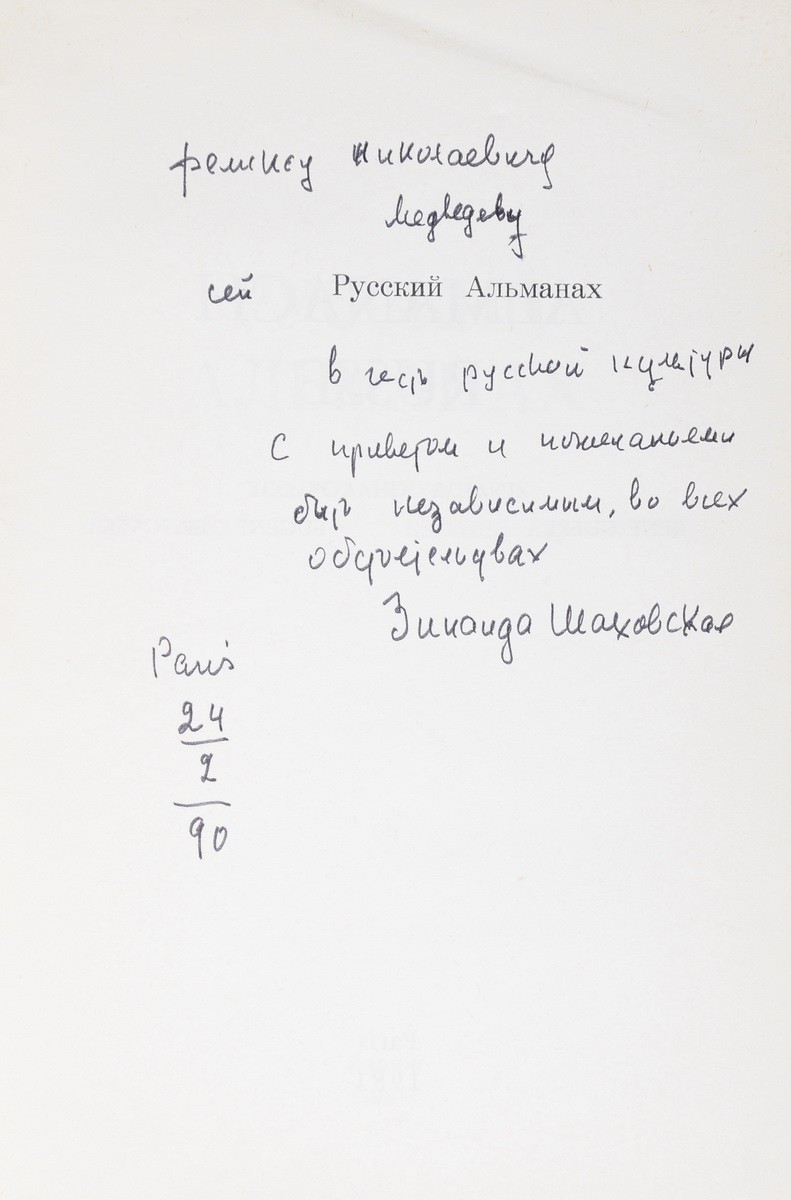 Феликсу Николаевичу
Медведеву
сей Русский Альманах
в честь русской культуры
С приветом и пожеланьеми
быть независимым, во всех
обстоятельствах
Зинаида Шаховская
Paris
24
2
90